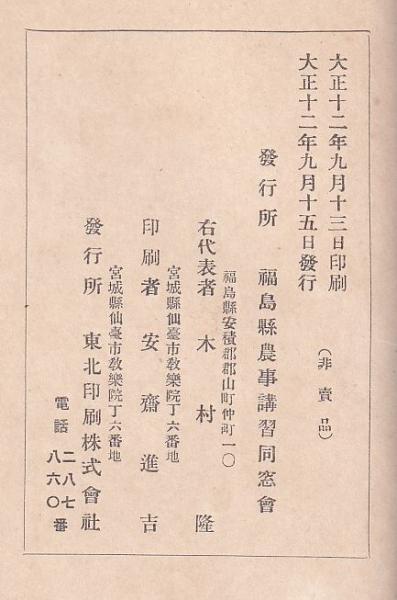 大正十二年九月十三日印刷
大正十二年九月十五日發行
(非賣品)
發行所 福島縣農事講習同窓會
福島縣安積郡郡山町仲町一〇
右代表者 木村隆
宮城縣仙臺市敎樂院丁六番地
印刷者 安齋進吉
宮城縣仙臺市敎樂院丁六番地
發行所 東北印刷株式會社
電話 二八七 八六〇番